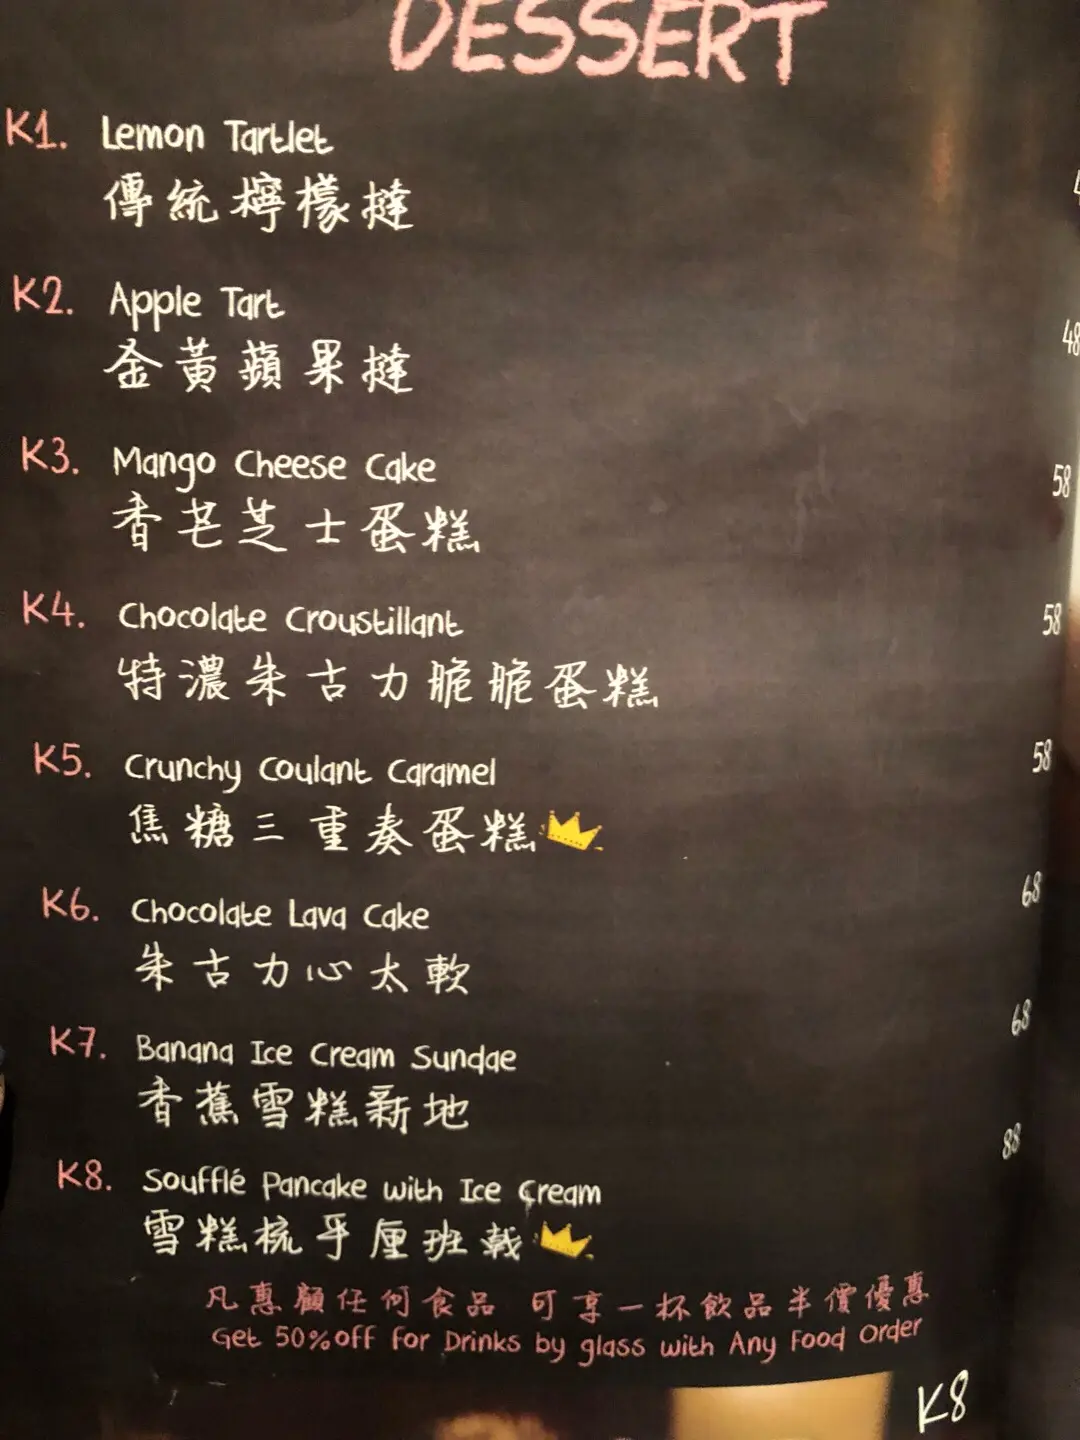 DESSERT
K1. Lemon Tartlet
傳統檸檬撻
K2. Apple Tart 48
金黃蘋果撻
K3. Mango Cheese Cake 58
香芒芝士蛋糕
K4. Chocolate Croustillant 58
特濃朱古力脆脆蛋糕
K5. Crunchy Coulant Caramel 58
焦糖三重奏蛋糕
K6. Chocolate Lava Cake 68
朱古力心太軟
K7. Banana Ice Cream Sundae 68
香蕉雪糕新地
K8. Soufflé Pancake with Ice Cream 88
雪糕梳乎厘班戟
凡惠顧任何食品 可享一杯飲品半價優惠
Get 50%off for Drinks by glass with Any Food Order
K8